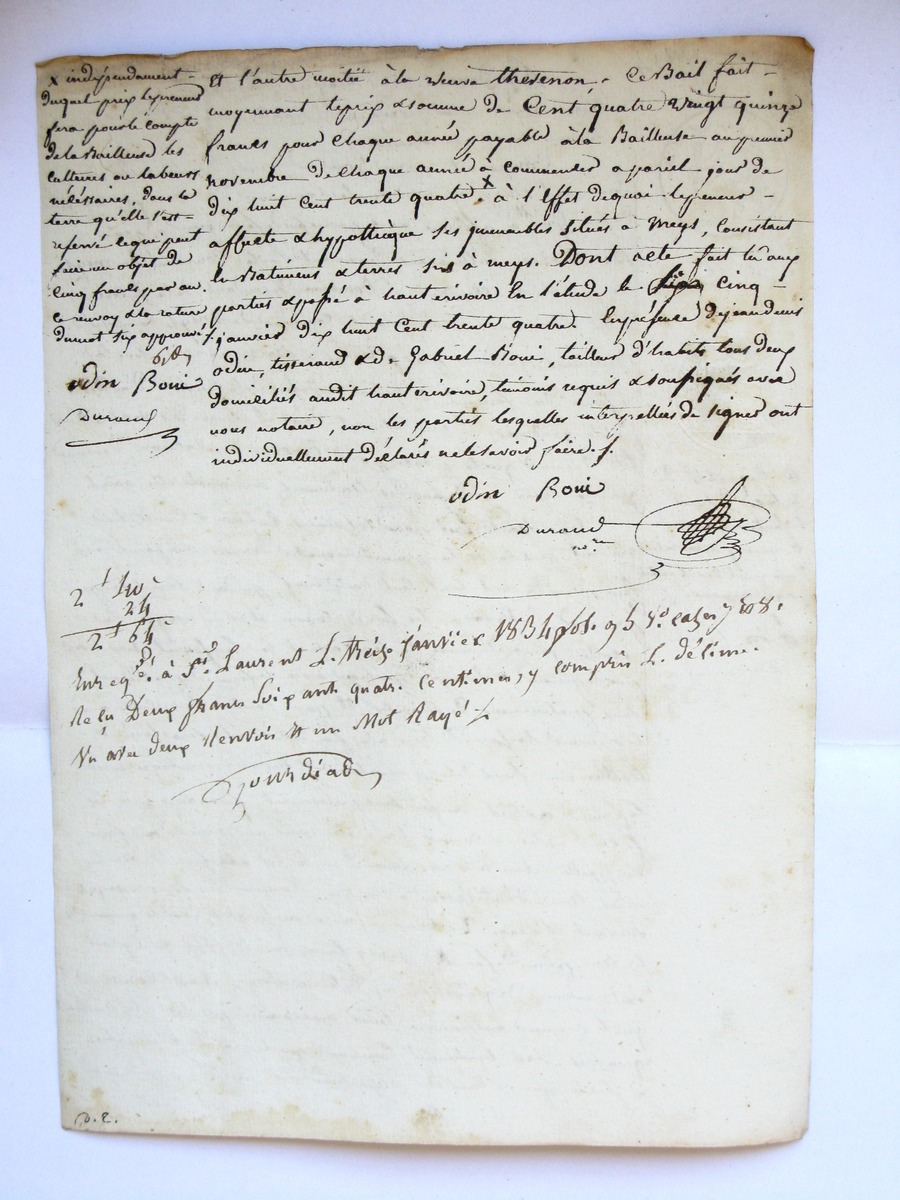 x indépendament
duquel prix le preneur
fera pour le compte
de la Bailleuse les
cultures ou labeurs
nécéssaires, dans la
terre qu'elle s'est
reservé ce qui peut
faire un objet de
cinq francs par an.
ce renvoy & la rature
du mot six approuvés /.
odin Boui
Durand
Et l'autre moitié à la veuve thevenon. Ce Bail fait
moyennant le prix & somme de Cent quatre vingt quinze
francs pour chaque année payable à la Bailleuse au premier
novembre de chaque année à commencer a pareil jour de
dix huit cent trente quatre x à l'Effet de quoi le preneur
affecte & hypothèque ses immeubles situés à meys, consistant
en Batimens & terres sis à meys. Dont acte fait lu aux
parties & passé à hauterivoire En l'étude le six cinq
janvier dix huit Cent trente quatre. En présence de jean denis
odin, tisserand & d. Gabriel Boui, tailleur d'habits tous deux
domiciliés audit hauterivoire, témoins requis & soussignés avec
nous notaire, non les parties lesquelles interpellées de signer ont
individuellement déclarés ne le savoir faire. /.
odin Boui
Durand
nre
2f 40c
24
2f 64c
Enregé. à St. Laurent le treize Janvier 1834 fol. 95 Vo. cases 7 & 8.
Reçu Deux francs Soixante quatre centimes, y compris le décime.
Vu avec deux Renvois et un Mot Rayé /.
D. E.